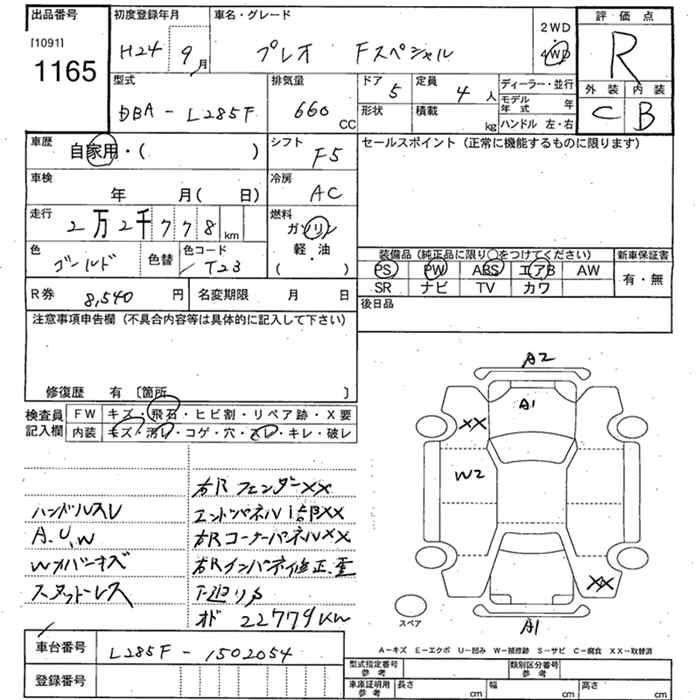 出品番号 初度登録年月 車名・グレード 2WD 評価点
[1091] H24 9月 プレオ Fスペシャル 4WD R
1165
型式 排気量 ドア 5 定員 4人 ディーラー・並行 外装 内装
DBA-L285F 660 CC 形状 積載 kg モデル年式 年 C B
ハンドル 左・右
車歴 自家用・( ) シフト F5 セールスポイント (正常に機能するものに限ります)
車検 年 月( 日) 冷房 AC
走行 2万2千778km 燃料 ガソリン
軽・油
( )
色 ゴールド 色替 色コード T23 装備品 (純正品に限り○をつけてください) 新車保証書
PS PW ABS エアB AW 有・無
SR ナビ TV カワ
R券 8,540円 名変期限 月 日 後日品
注意事項申告欄 (不具合内容等は具体的に記入して下さい)
修復歴 有 〔箇所 〕
検査員記入欄 FW キズ・飛石・ヒビ割・リペア跡・X要
内装 キズ・汚レ・コゲ・穴・スレ・キレ・破レ
右Rフェンダー××
ハンドルスレ エンドパネル1部××
A.U,W 右Rコーナーパネル××
Wカバーキズ 右Rインパネ修正,歪
スタットレス 下廻りサ
オド 22779km
A2
A1
××
W2
××
スペア A1
A－キズ E－エクボ U－凹み W－補修跡 S－サビ C－腐食 XX－取替済
車台番号 L285F-1502054
登録番号
型式指定番号 参考 類別区分番号 参考
車庫証明用 参考 長さ cm 幅 cm 高さ cm